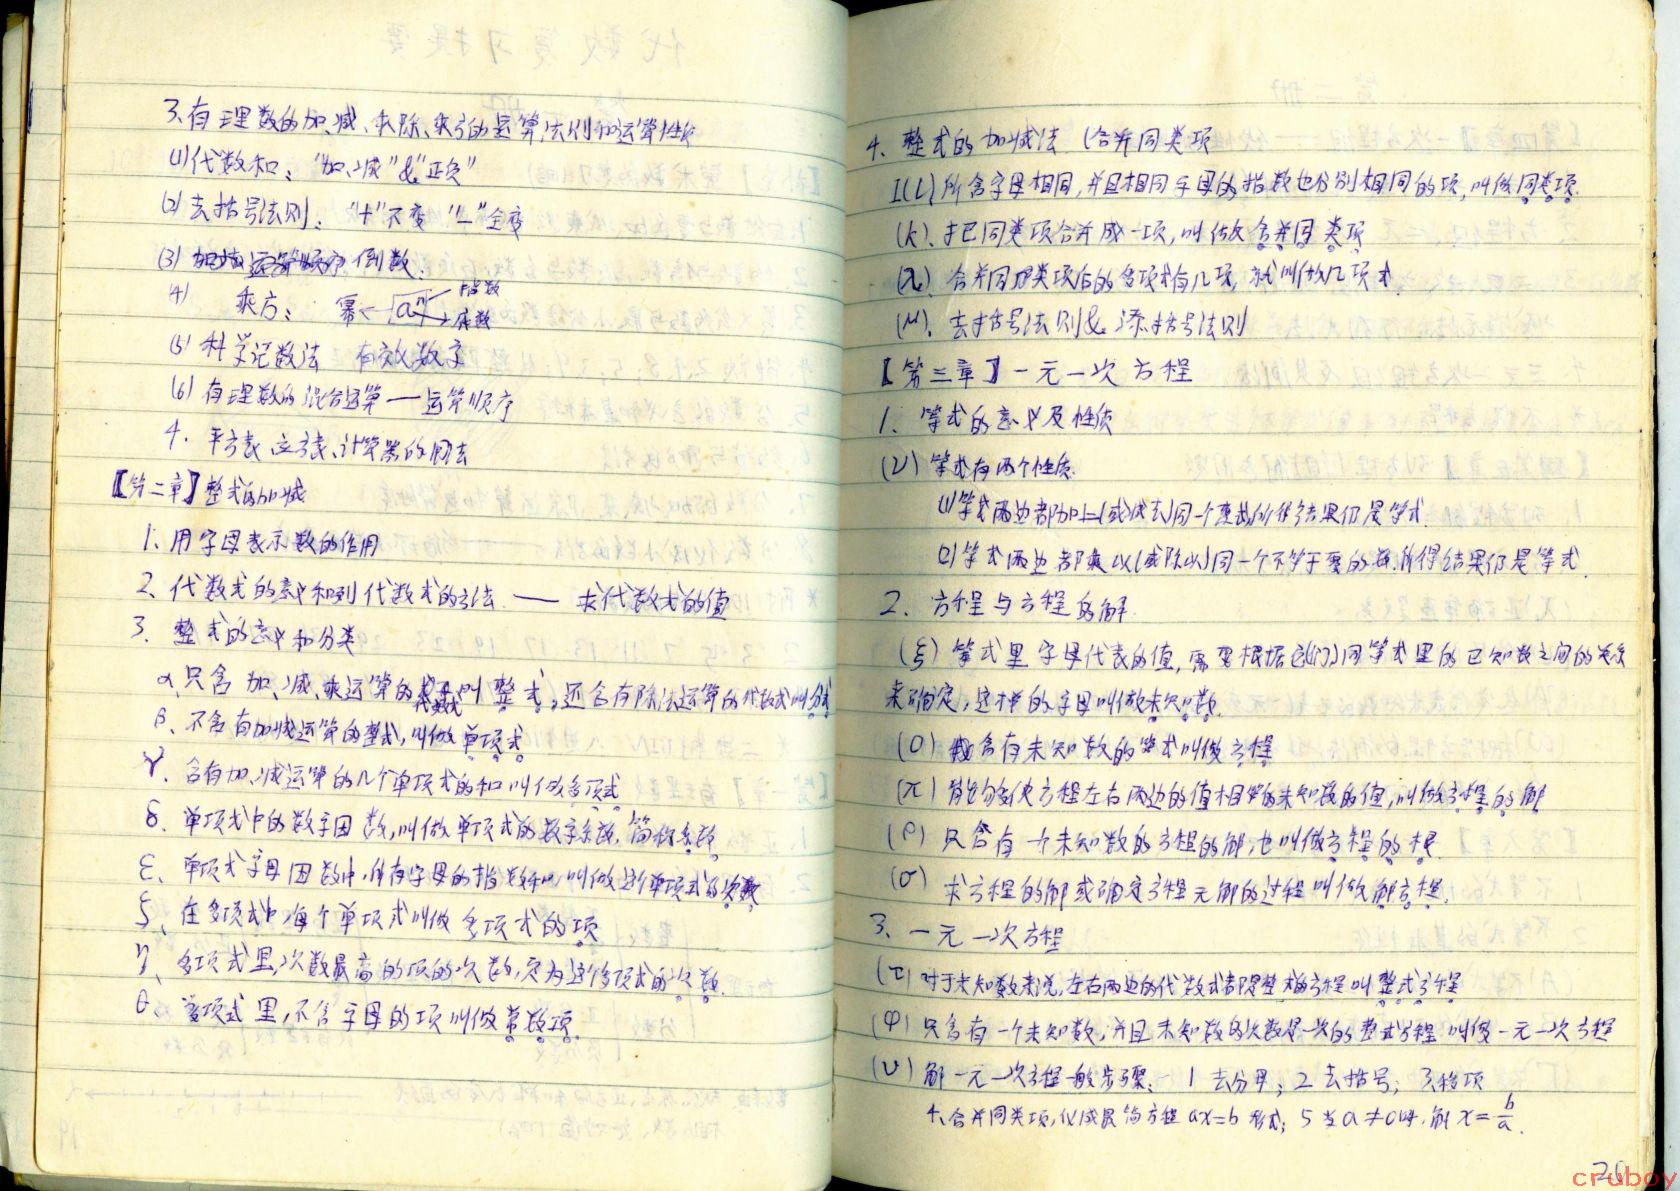 3、有理数的加、减、乘除、乘方的运算,法则和运算性质
(1)代数和: "加、减"&"正负"
(2)去括号法则: "+"不变 "-"全变
(3) 倒数.
(4) 乘方: 幂 ← aⁿ → 指数
→ 底数
(5) 科学记数法 有效数字
(6) 有理数的混合运算——运算顺序
4、平方表、立方表、计算器的用法
【第二章】整式的加减
1、用字母表示数的作用
2、代数式的意义和列代数式的方法 —— 求代数式的值
3、整式的意义和分类
α、只含加、减、乘运算的代数式叫整式,还含有除法运算的代数式叫分式
β、不含有加减运算的整式,叫做单项式
γ、含有加、减运算的几个单项式的和叫做多项式
δ、单项式中的数字因数,叫做单项式的数字系数,简称系数
ε、单项式字母因数中,所有字母的指数和叫做这个单项式的次数
ζ、在多项式中,每个单项式叫做多项式的项
η、多项式里,次数最高的项的次数,定为这个多项式的次数.
θ、多项式里,不含字母的项叫做常数项.
4、整式的加减法 (合并同类项
I(ι)所含字母相同,并且相同字母的指数也分别相同的项,叫做同类项.
(κ)、把同类项合并成一项,叫做合并同类项
(λ)、合并同类项后的多项式有几项,就叫做几项式.
(μ)、去括号法则&添括号法则
【第三章】一元一次方程
1、等式的意义及性质
(ν)等式有两个性质:
(1)等式两边都加上(或减去)同一个 所得结果仍是等式.
(2)等式两边都乘以(或除以)同一个不等于零的数,所得结果仍是等式.
2、方程与方程的解.
(ξ)等式里字母代表的值,需要根据它(们)同等式里的已知数之间的关系
来确定,这样的字母叫做未知数.
(ο) 含有未知数的等式叫做方程
(π) 能够使方程左右两边的值相等的未知数的值,叫做方程的解
(ρ) 只含有一个未知数的方程的解,也叫做方程的根.
(σ) 求方程的解或确定方程无解的过程叫做解方程.
3、一元一次方程
(τ)对于未知数来说,左右两边的代数式都是整式的方程叫整式方程
(φ)只含有一个未知数,并且未知数的次数是一次的整式方程叫做一元一次方程
(υ)解一元一次方程一般步骤:1 去分母; 2 去括号; 3 移项
4、合并同类项,化成最简方程 ax=b 形式; 5 当a≠0时,解x=b/a.
20
cruboy